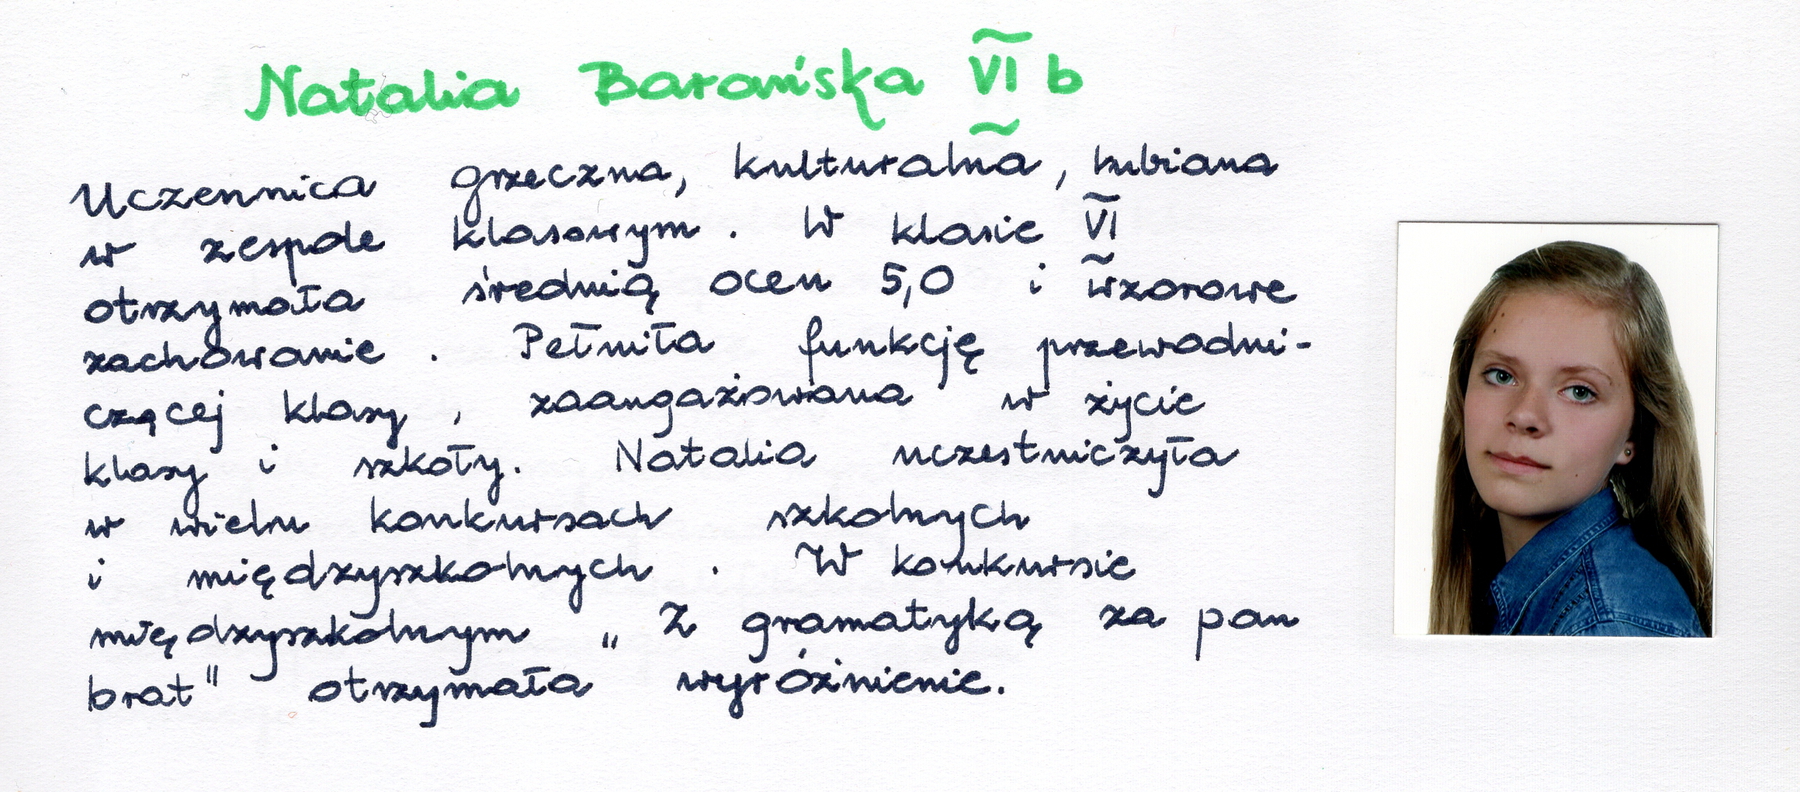 Natalia Barańska VI b
Uczennica grzeczna, kulturalna, lubiana
w zespole klasowym. W klasie VI
otrzymała średnią ocen 5,0 i wzorowe
zachowanie. Pełniła funkcję przewodni-
czącej klasy, zaangażowana w życie
klasy i szkoły. Natalia uczestniczyła
w wielu konkursach szkolnych
i międzyszkolnych. W konkursie
międzyszkolnym „Z gramatyką za pan
brat" otrzymała wyróżnienie.